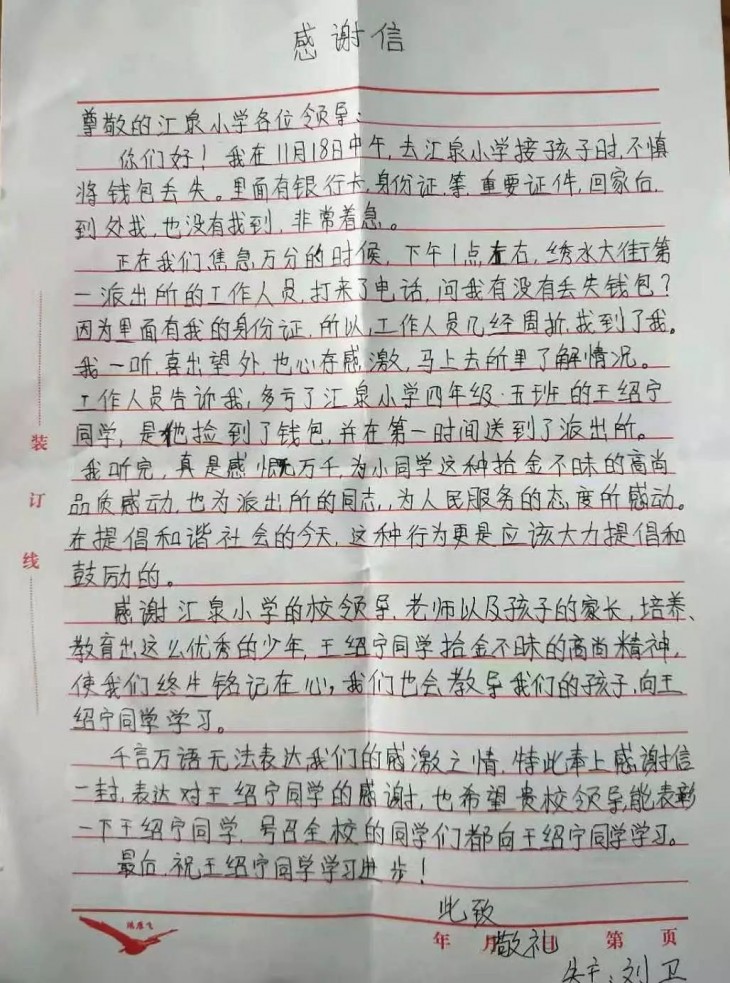 感谢信
尊敬的汇泉小学各位领导:
你们好！我在11月18日中午,去汇泉小学接孩子时,不慎
将钱包丢失。里面有银行卡,身份证,等,重要证件,回家后,
到处找,也没有找到,非常着急。
正在我们焦急万分的时候,下午1点左右,绣水大街第
一派出所的工作人员,打来了电话,问我有没有丢失钱包?
因为里面有我的身份证,所以,工作人员几经周折,找到了我。
我一听,喜出望外,也心存感激,马上去所里了解情况。
工作人员告诉我,多亏了汇泉小学四年级·五班的王绍宁
同学,是他捡到了钱包,并在第一时间送到了派出所。
我听完,真是感慨万千为小同学这种拾金不昧的高尚
品质感动,也为派出所的同志,为人民服务的态度所感动。
在提倡和谐社会的今天,这种行为更是应该大力提倡和
鼓励的。
感谢汇泉小学的校领导,老师以及孩子的家长,培养、
教育出这么优秀的少年,王绍宁同学拾金不昧的高尚精神,
使我们终生铭记在心,我们也会教导我们的孩子,向王
绍宁同学学习。
千言万语无法表达,我们的感激之情,特此奉上感谢信
一封,表达对王绍宁同学的感谢,也希望贵校领导,能表彰
一下王绍宁同学,号召全校的同学们都向王绍宁同学学习。
最后,祝王绍宁同学学习进步!
此致
敬礼
年 月 日 第 页
失主:刘卫
装订线
鸿雁飞